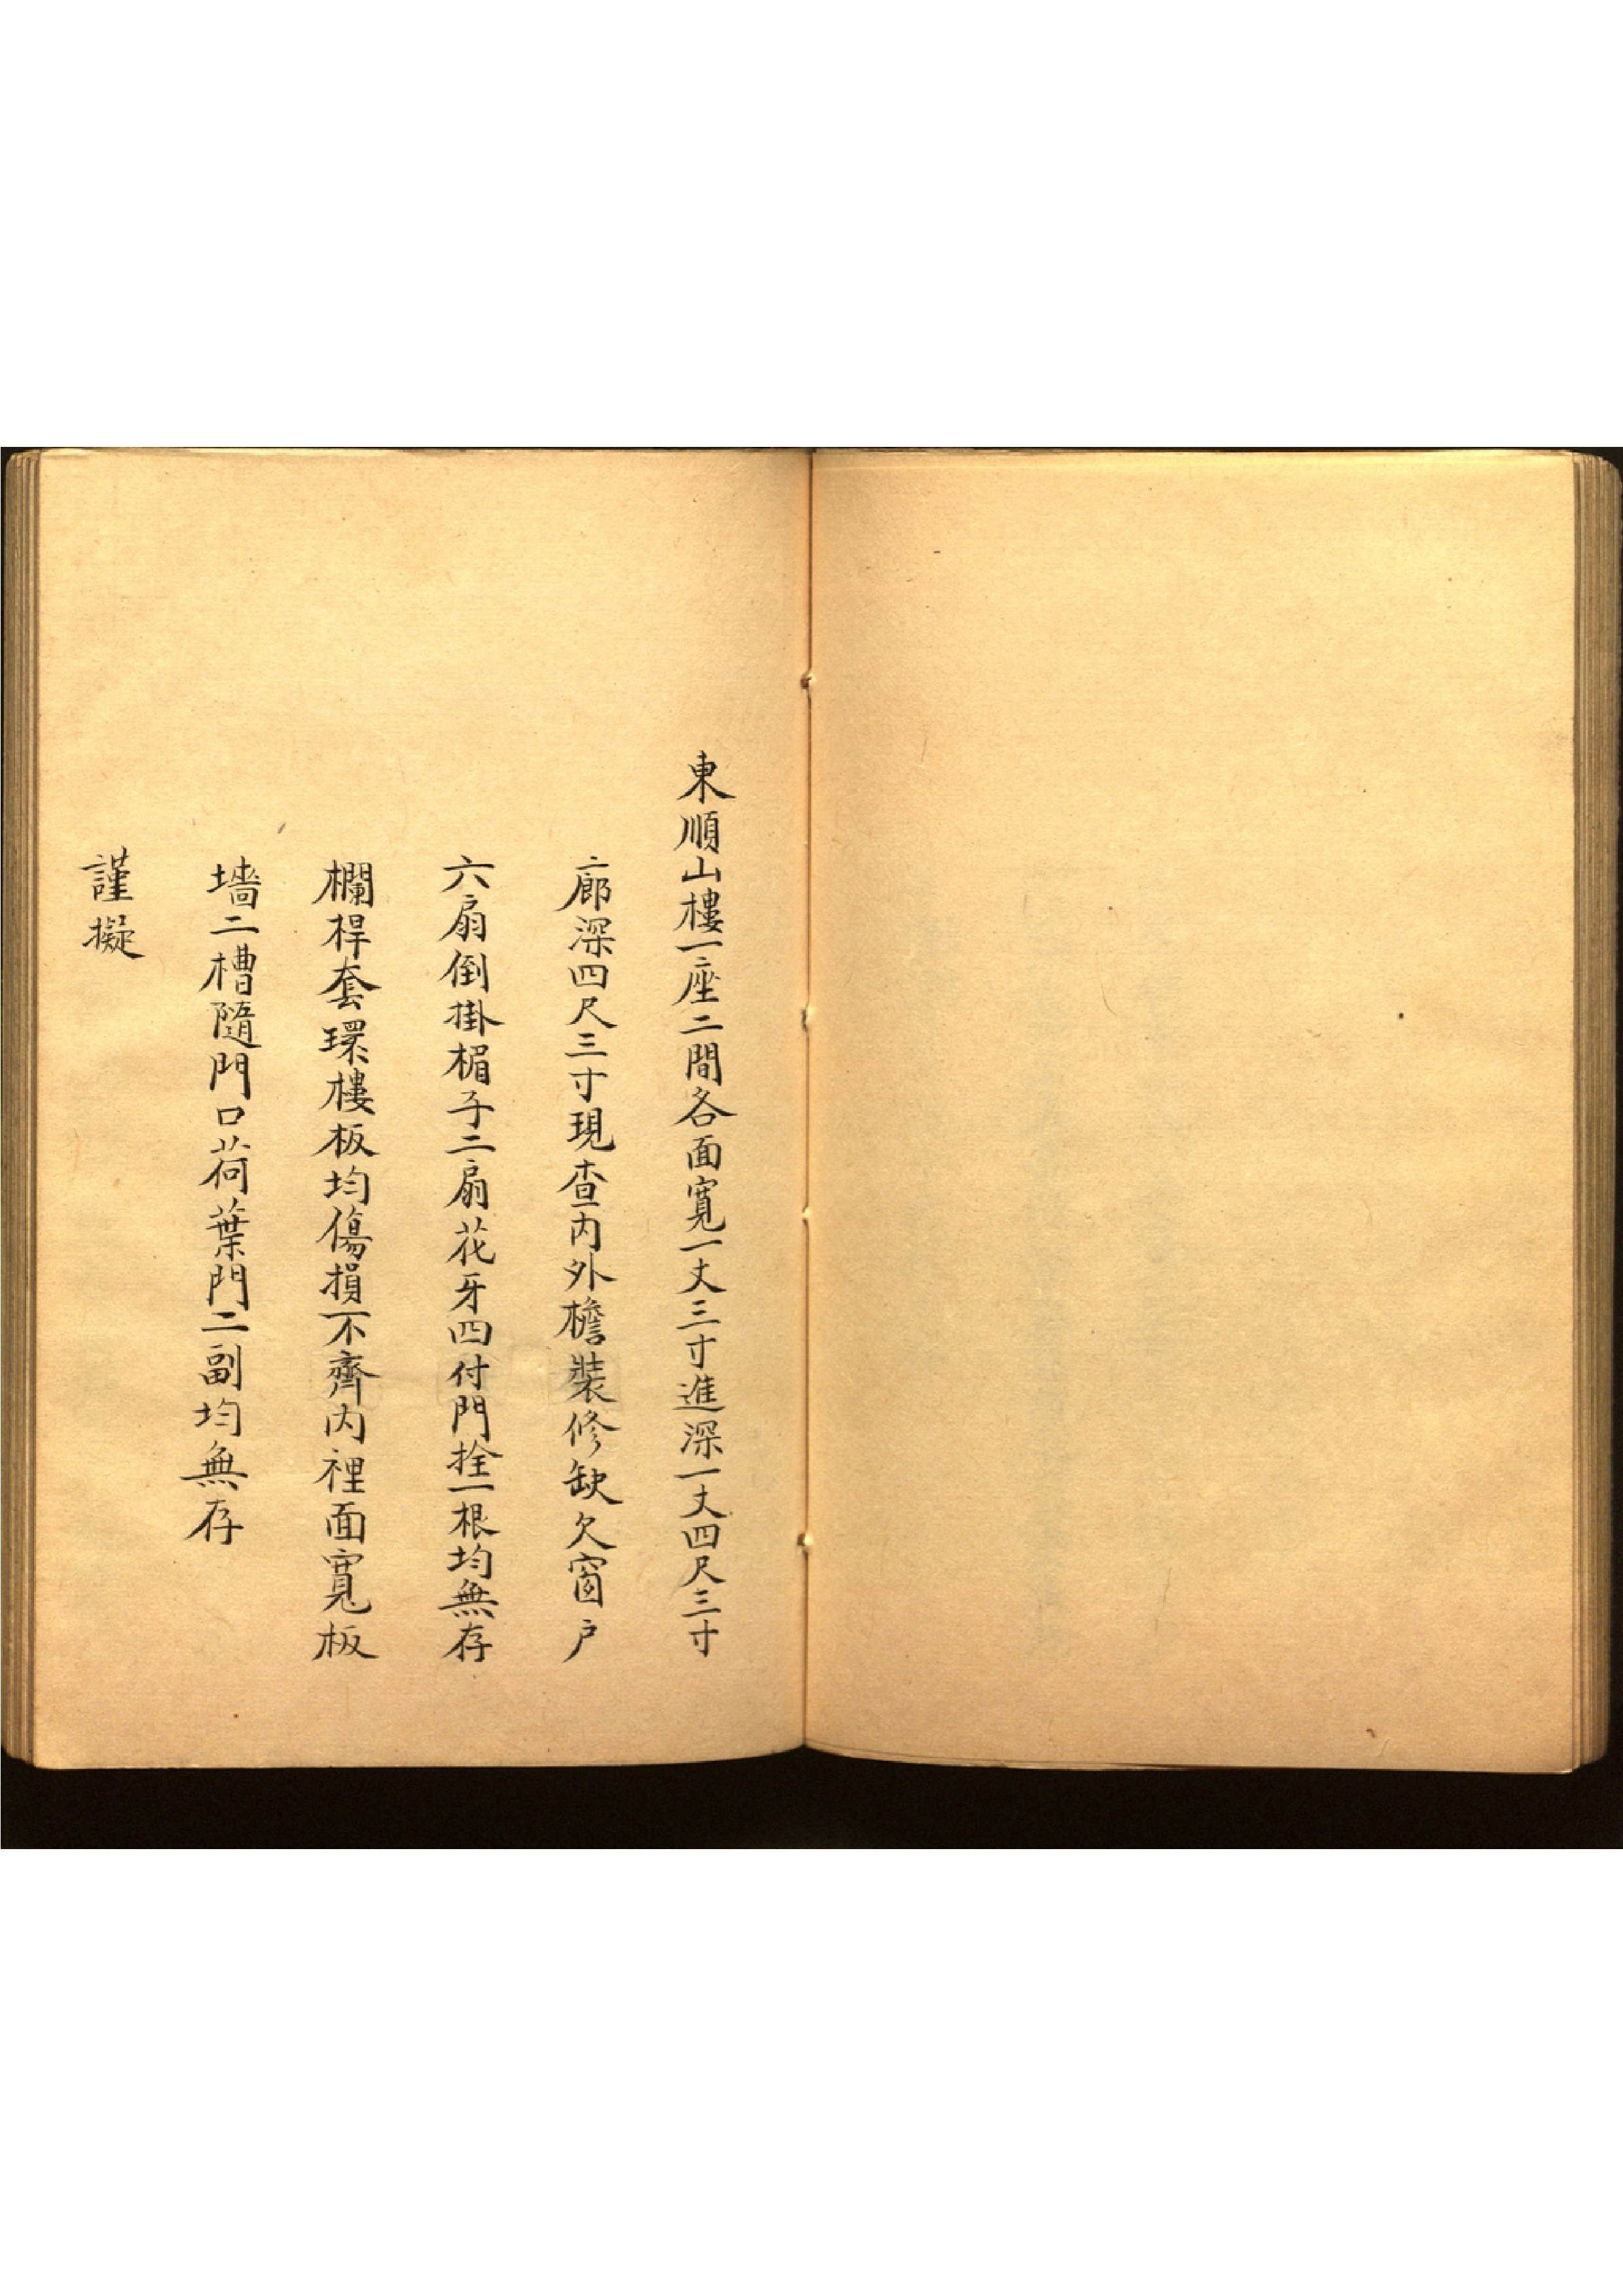 東順山樓一座二間各面寬一丈三寸進深一丈四尺三寸
廊深四尺三寸現查内外檐裝修缺欠窗戶
六扇倒掛楣子二扇花牙四付門拴一根均無存
欄桿套環樓板均傷損不齊内裡面寬板
墻二槽隨門口荷葉門二副均無存
謹擬